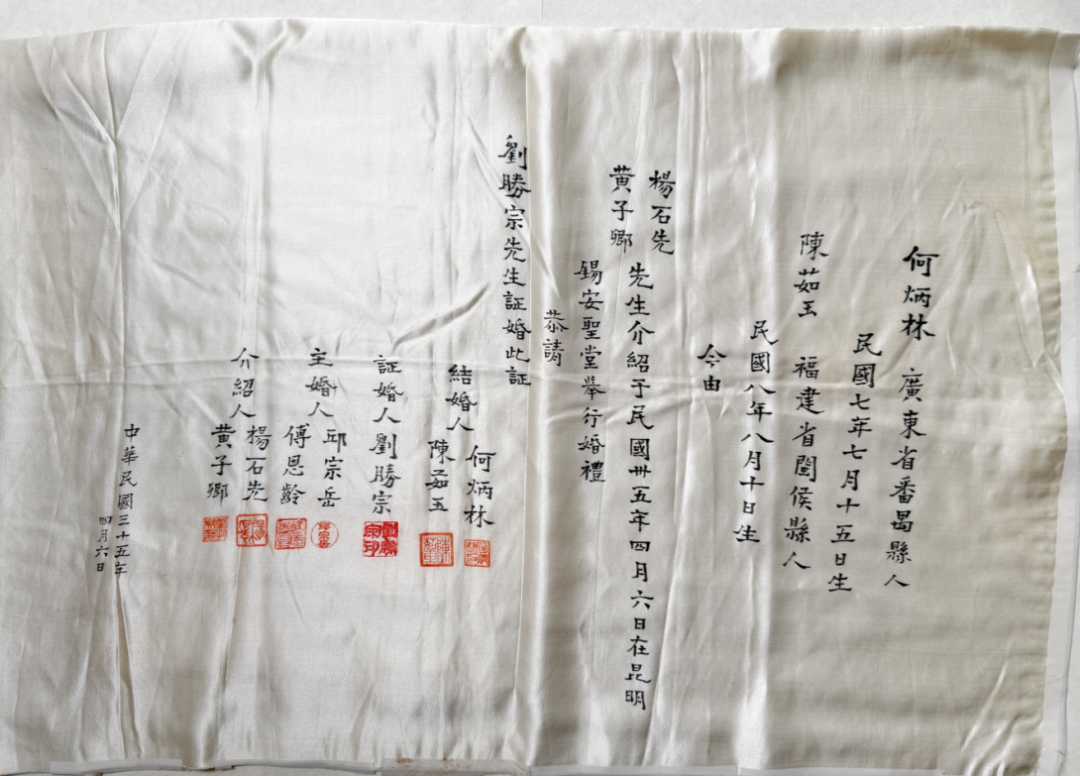 何炳林　廣東省番禺縣人
民國七年七月十五日生
陳茹玉　福建省閩侯縣人
民國八年八月十日生
今由
楊石先
黄子卿
先生介紹于民國卅五年四月六日在昆明
錫安聖堂舉行婚禮
恭請
劉勝宗先生証婚此証
結婚人
何炳林
陳茹玉
証婚人劉勝宗
主婚人
邱宗岳
傅恩齡
介紹人
楊石先
黄子卿
中華民國三十五年
四月六日